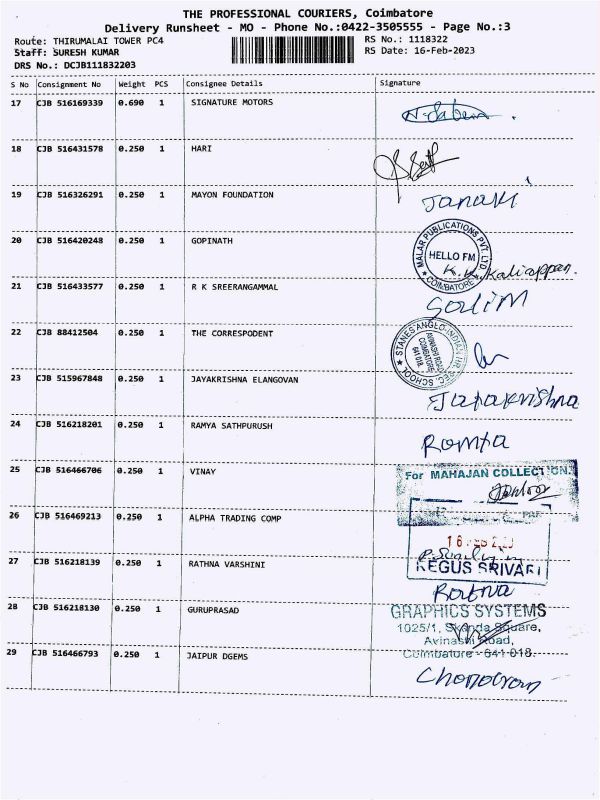 THE PROFESSIONAL COURIERS, Coimbatore
Delivery Runsheet - MO - Phone No.:0422-3505555 - Page No.:3
Route: THIRUMALAI TOWER PC4 RS No.: 1118322
Staff: SURESH KUMAR RS Date: 16-Feb-2023
DRS No.: DCJB111832203
S No Consignment No Weight PCS Consignee Details Signature
17 CJB 516169339 0.690 1 SIGNATURE MOTORS
18 CJB 516431578 0.250 1 HARI
19 CJB 516326291 0.250 1 MAYON FOUNDATION Janaki
20 CJB 516420248 0.250 1 GOPINATH
MALAR PUBLICATIONS PVT. LTD.
HELLO FM
COIMBATORE
K.K. Kaliappan.
21 CJB 516433577 0.250 1 R K SREERANGAMMAL Salim
22 CJB 88412504 0.250 1 THE CORRESPODENT
STANES ANGLO-INDIAN HR. SEC. SCHOOL
AVINASHI ROAD
COIMBATORE
641 018.
23 CJB 515967848 0.250 1 JAYAKRISHNA ELANGOVAN Jayakrishna
24 CJB 516218201 0.250 1 RAMYA SATHPURUSH Ramya
25 CJB 516466706 0.250 1 VINAY
For MAHAJAN COLLECTION.
26 CJB 516469213 0.250 1 ALPHA TRADING COMP
16 FEB 2023
REGUS SRIVARI
27 CJB 516218139 0.250 1 RATHNA VARSHINI Rathna
28 CJB 516218130 0.250 1 GURUPRASAD
GRAPHICS SYSTEMS
1025/1, Skanda Square,
Avinashi Road,
Coimbatore - 641 018.
29 CJB 516466793 0.250 1 JAIPUR DGEMS